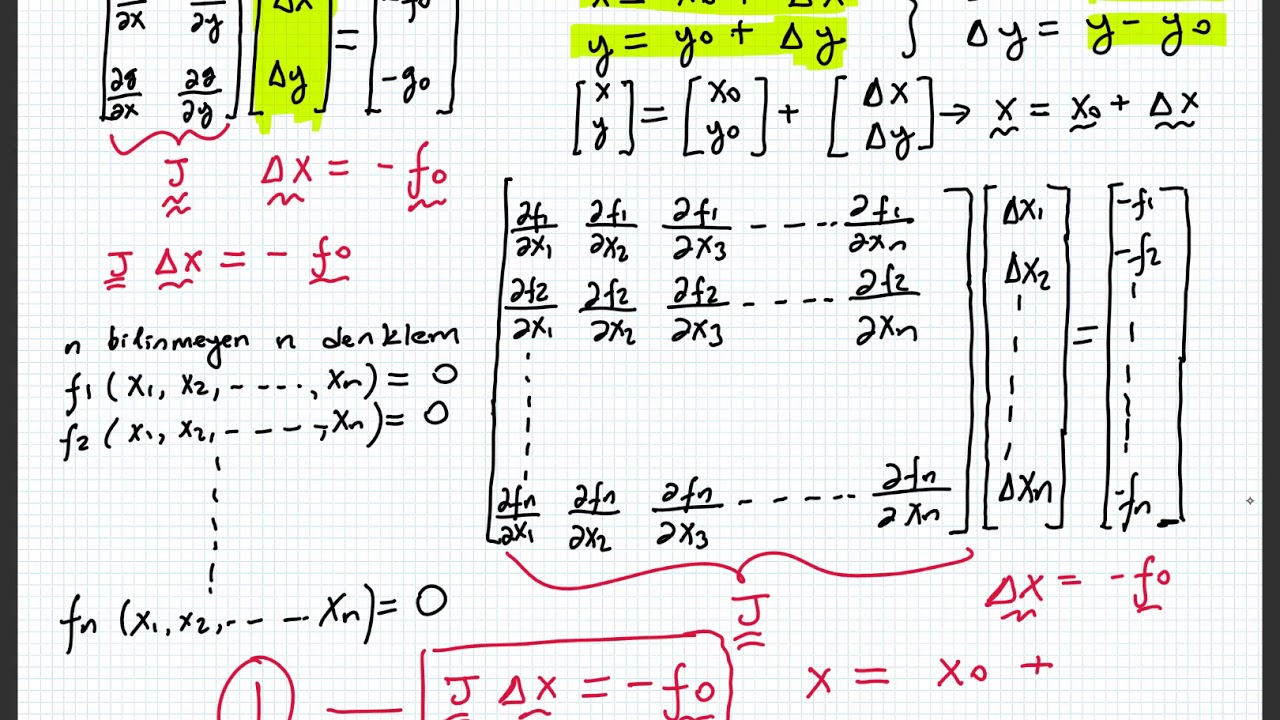 ∂x ∂y Δx = -f0
∂g/∂x ∂g/∂y Δy -g0
J Δx = -f0
J Δx = -f0
x = x0 + Δx
y = y0 + Δy } Δy = y - y0
[x y] = [x0 y0] + [Δx Δy] → x = x0 + Δx
n bilinmeyen n denklem
f1 (x1, x2, -----, xn) = 0
f2 (x1, x2, -----, xn) = 0
fn (x1, x2, -----, xn) = 0
∂f1/∂x1 ∂f1/∂x2 ∂f1/∂x3 ------ ∂f1/∂xn Δx1 -f1
∂f2/∂x1 ∂f2/∂x2 ∂f2/∂x3 ------ ∂f2/∂xn Δx2 = -f2
∂fn/∂x1 ∂fn/∂x2 ∂fn/∂x3 ------ ∂fn/∂xn Δxn -fn
J Δx = -f0
1 — J Δx = -f0 x = x0 +